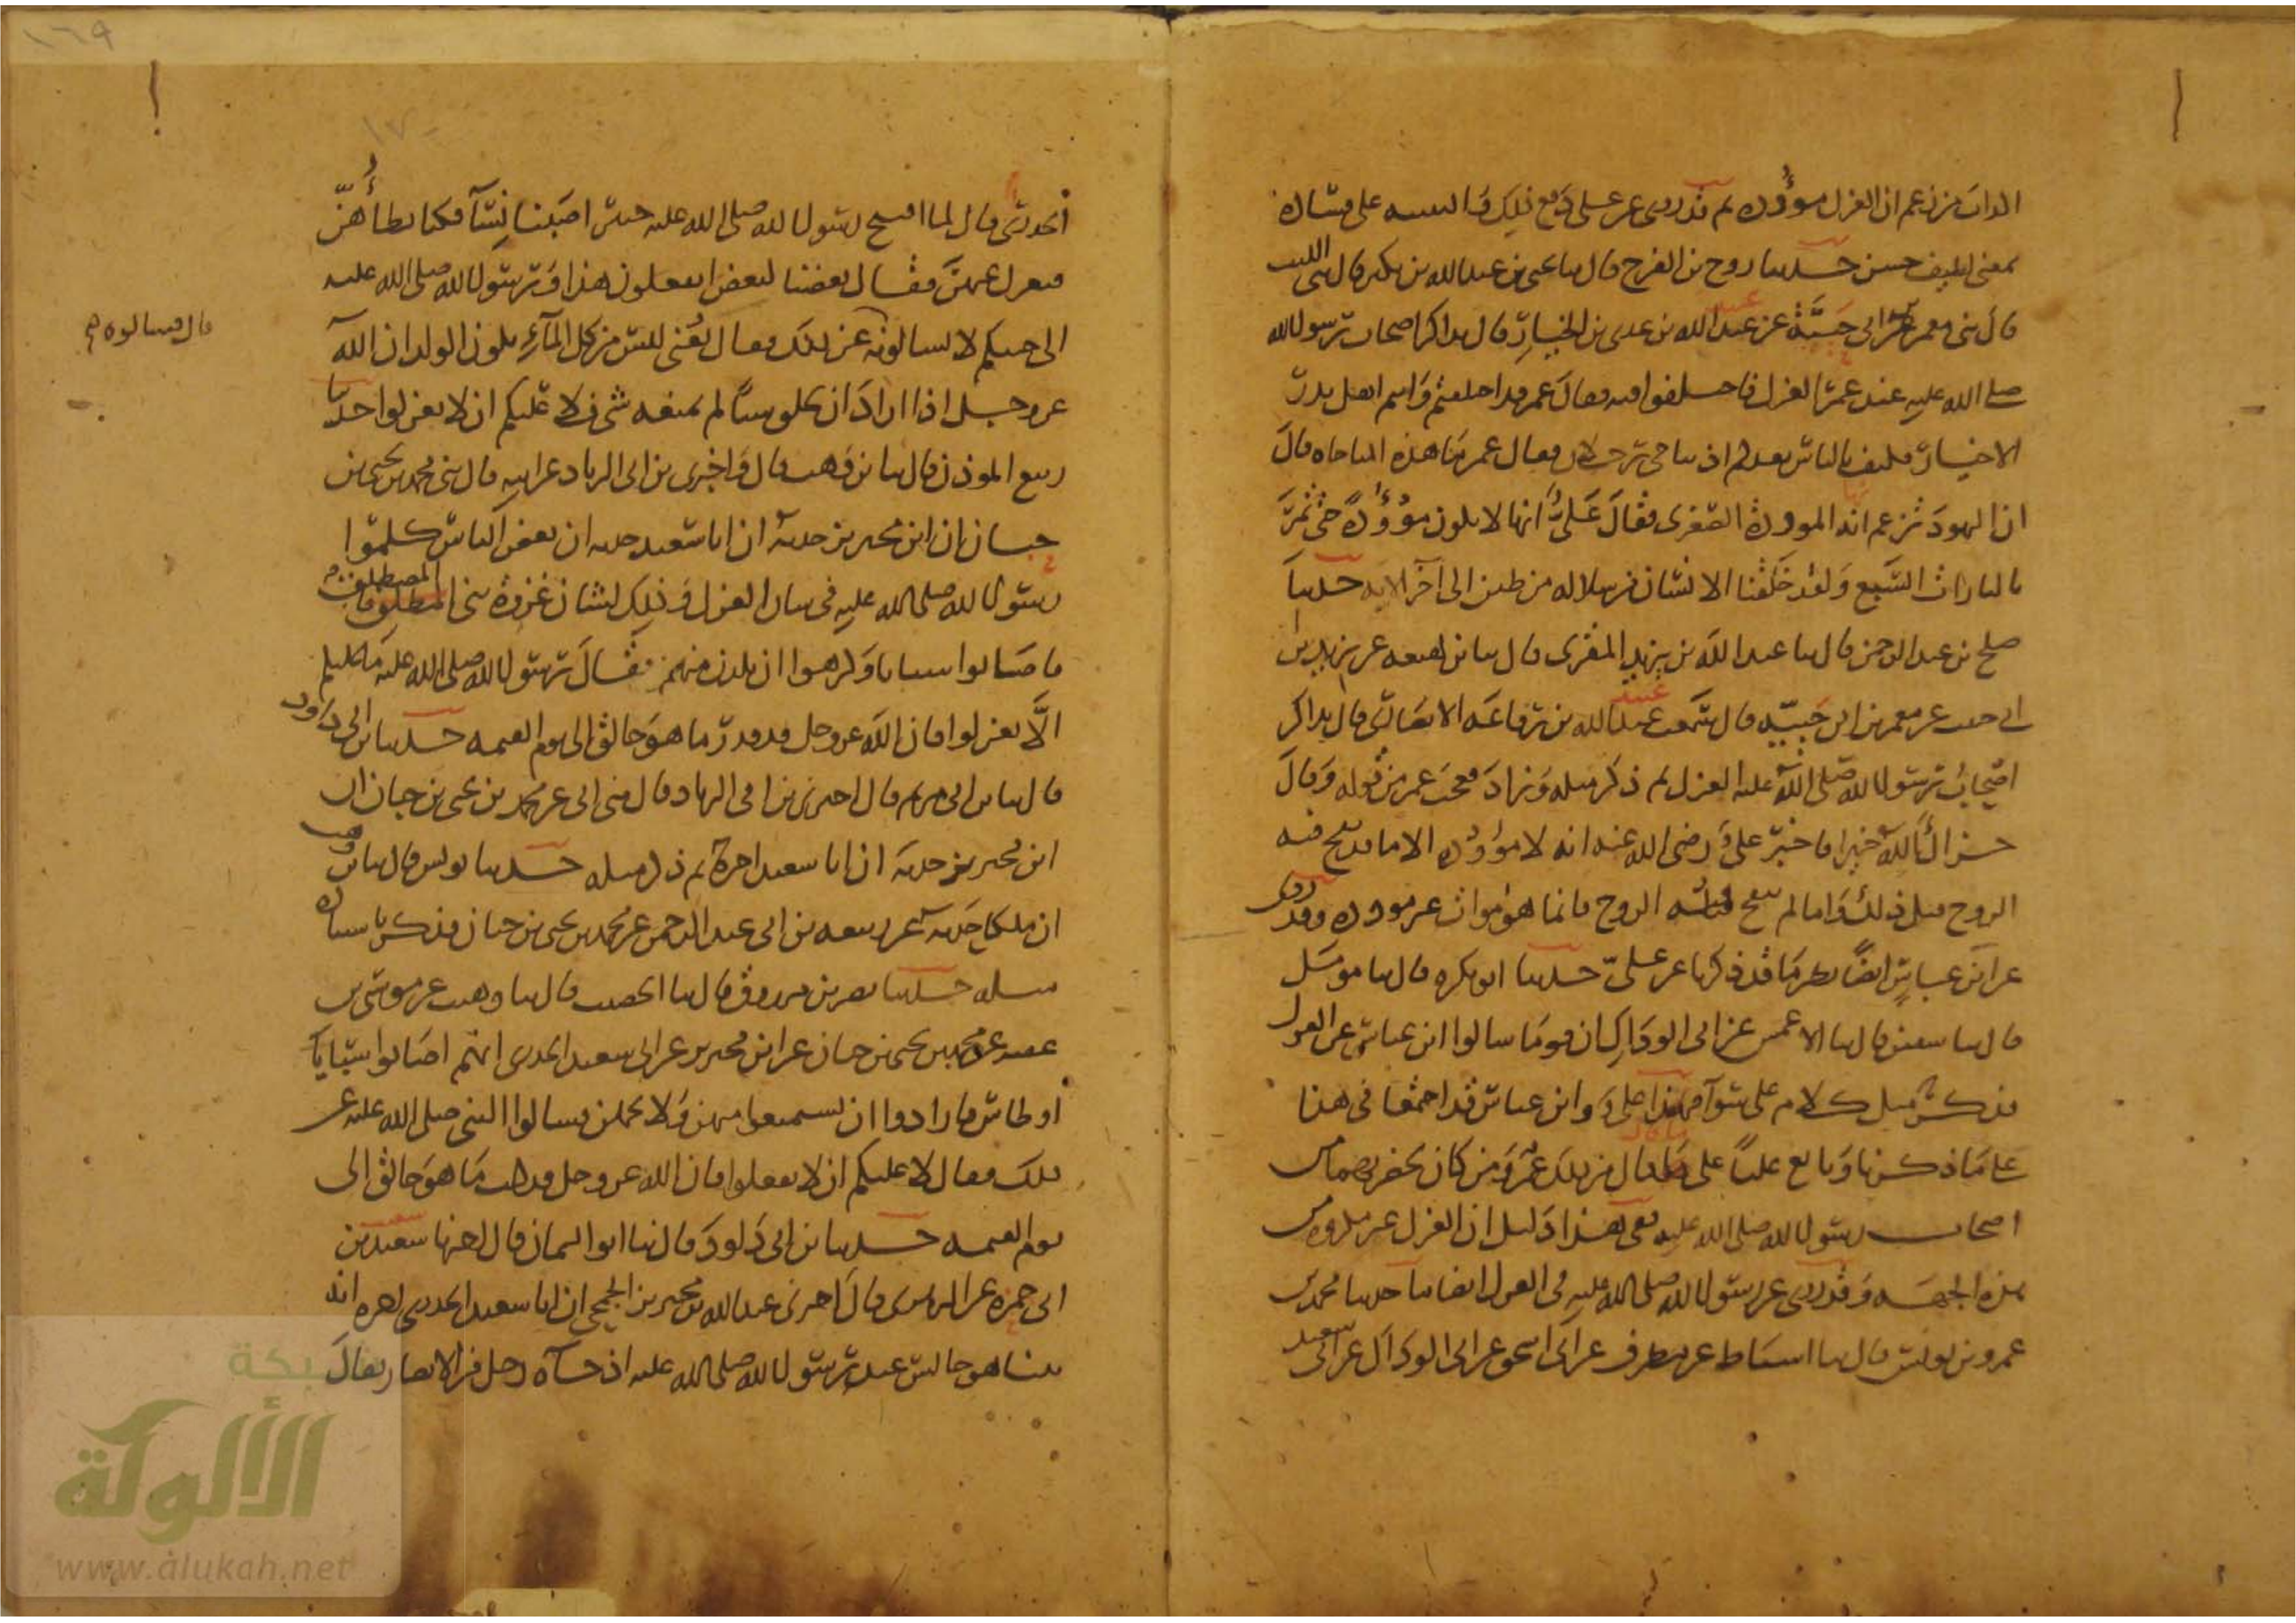 الذات من زعم ان العزل موؤده ثم قد روى عن على دفع ذلك والتنبيه على فساده
بمعنى لطيف حسن حدثنا روح بن الفرج قال ثنا يحيى بن عبد الله بن بكير قال ثنى الليث
قال ثنى معمر بن ابى حبيبة عن عبيد الله بن عدى بن الخيار قال تذاكر اصحاب رسول الله
صلى الله عليه عند عمر العزل فاختلفوا فيه فقال عمر قد اختلفتم وانتم اهل بدر
الاخيار فكيف بالناس بعدكم اذ تناجى رجلان فقال عمر ما هذه المناجاه قال
ان اليهود تزعم انها الموؤدة الصغرى فقال على انها لا تكون موؤدة حتى تمر
بالتارات السبع ولقد خلقنا الانسان من سلاله من طين الى آخر الايه حدثنا
صلح بن عبد الرحمن قال ثنا عبد الله بن يزيد المقرى قال ثنا بن لهيعه عن يزيد بن
ابى حبيب عن معمر بن ابى حبيبه قال سمعت عبيد الله بن رفاعه الانصارى قال تذاكر
اصحاب رسول الله صلى الله عليه العزل ثم ذكر مثله وزاد فعجب عمر من قوله وقال
جزاك الله خيرا فاخبر على رضى الله عنه انه لا موؤده الا ما قد نفخ فيه
الروح قبل ذلك واما ما لم ينفخ فيه الروح فانما هو موات غير موؤده وقد روى
عن ابن عباس ايضا نظير ما قد ذكرنا عن على حدثنا ابو بكره قال ثنا مومل
قال ثنا سفين قال ثنا الاعمش عن ابى الوداك ان قوما سالوا ابن عباس عن العزل
فذكر مثل كلام على سواء فهذا على وابن عباس قد اجتمعا فى هذا
على ما ذكرنا وتابع عليا على ما قال من ذلك عمر ومن كان بحضرتهما من
اصحاب رسول الله صلى الله عليه ففى هذا دليل ان العزل غير مكروه من
هذه الجهه وقد روى عن رسول الله صلى الله عليه فى العزل ايضا ما حدثنا محمد بن
عمرو بن يونس قال ثنا اسباط عن مطرف عن ابى اسحق عن ابى الوداك عن ابى سعيد
الخدرى قال لما افتتح رسول الله صلى الله عليه خيبر اصبنا نسآ فكنا نطأهن
فنعزل عنهن فقال بعضنا لبعض اتفعلون هذا ورسول الله صلى الله عليه
الى جنبكم لا تسالونه عن ذلك فقال يعنى ليس من كل المآء يكون الولد ان الله
قال فسالوه
عز وجل اذا اراد ان يخلق شيئا لم يمنعه شى فلا عليكم ان لا تعزلوا حدثنا
ربيع الموذن قال ثنا بن وهب قال واخبرنى بن ابى الزناد عن ابيه قال ثنى محمد بن يحيى بن
حبان ان ابن محيريز حدثه ان ابا سعيد حدثه ان بعض الناس كلموا
رسول الله صلى الله عليه فى شان العزل وذلك لشان غزوة بنى المصطلق
فاصابوا سبايا وكرهوا ان يلدن منهم فقال رسول الله صلى الله عليه ما عليكم
الا تعزلوا فان الله عز وجل قد قدر ما هو خالق الى يوم القيمه حدثنا بن ابى داود
قال ثنا بن ابى مريم قال اخبرنى بن ابى الزناد قال ثنى ابى عن محمد بن يحيى بن حبان ان
ابن محيريز حدثه ان ابا سعيد اخبره ثم ذكر مثله حدثنا يونس قال ثنا بن وهب
ان ملكا حدثه عن ربيعه بن ابى عبد الرحمن عن محمد بن يحيى بن حبان فذكر باسناده
مثله حدثنا نصر بن مرزوق قال ثنا الخصيب قال ثنا وهيب عن موسى بن
عقبه عن محمد بن يحيى بن حبان عن ابن محيريز عن ابى سعيد الخدرى انهم اصابوا سبايا
اوطاس فارادوا ان يستمتعوا منهن ولا يحملن فسالوا النبى صلى الله عليه عن
ذلك فقال لا عليكم ان لا تفعلوا فان الله عز وجل قد كتب ما هو خالق الى
يوم القيمه حدثنا بن ابى داود قال ثنا ابو اليمان قال اخبرنا شعيب بن
ابى حمزه عن الزهرى قال اخبرنى عبد الله بن محيريز الجمحى ان ابا سعيد الخدرى اخبره انه
بينا هو جالس عند رسول الله صلى الله عليه اذ جآه رجل من الانصار فقال
شبكة
الألوكة
www.alukah.net